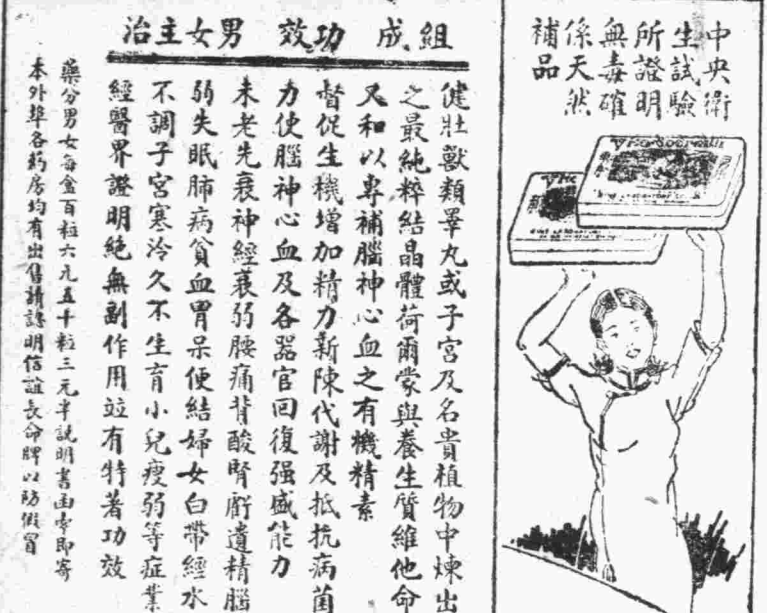 中央衛
生試驗
所證明
無毒確
係天然
補品
組成 功效 男女主治
健壯獸類睪丸或子宮及名貴植物中煉出
之最純粹結晶體荷爾蒙與養生質維他命
又和以專補腦神心血之有機精素
督促生機增加精力新陳代謝及抵抗病菌
力使腦神心血及各器官回復强盛能力
未老先衰神經衰弱腰痛背酸腎虧遺精腦
弱失眠肺病貧血胃呆便結婦女白帶經水
不調子宮寒冷久不生育小兒瘦弱等症業
經醫界證明絶無副作用竝有特著功效
藥分男女每盒百粒六元五十粒三元半説明書函索即寄
本外埠各药房均有出售請認明信誼長命牌以防假冒